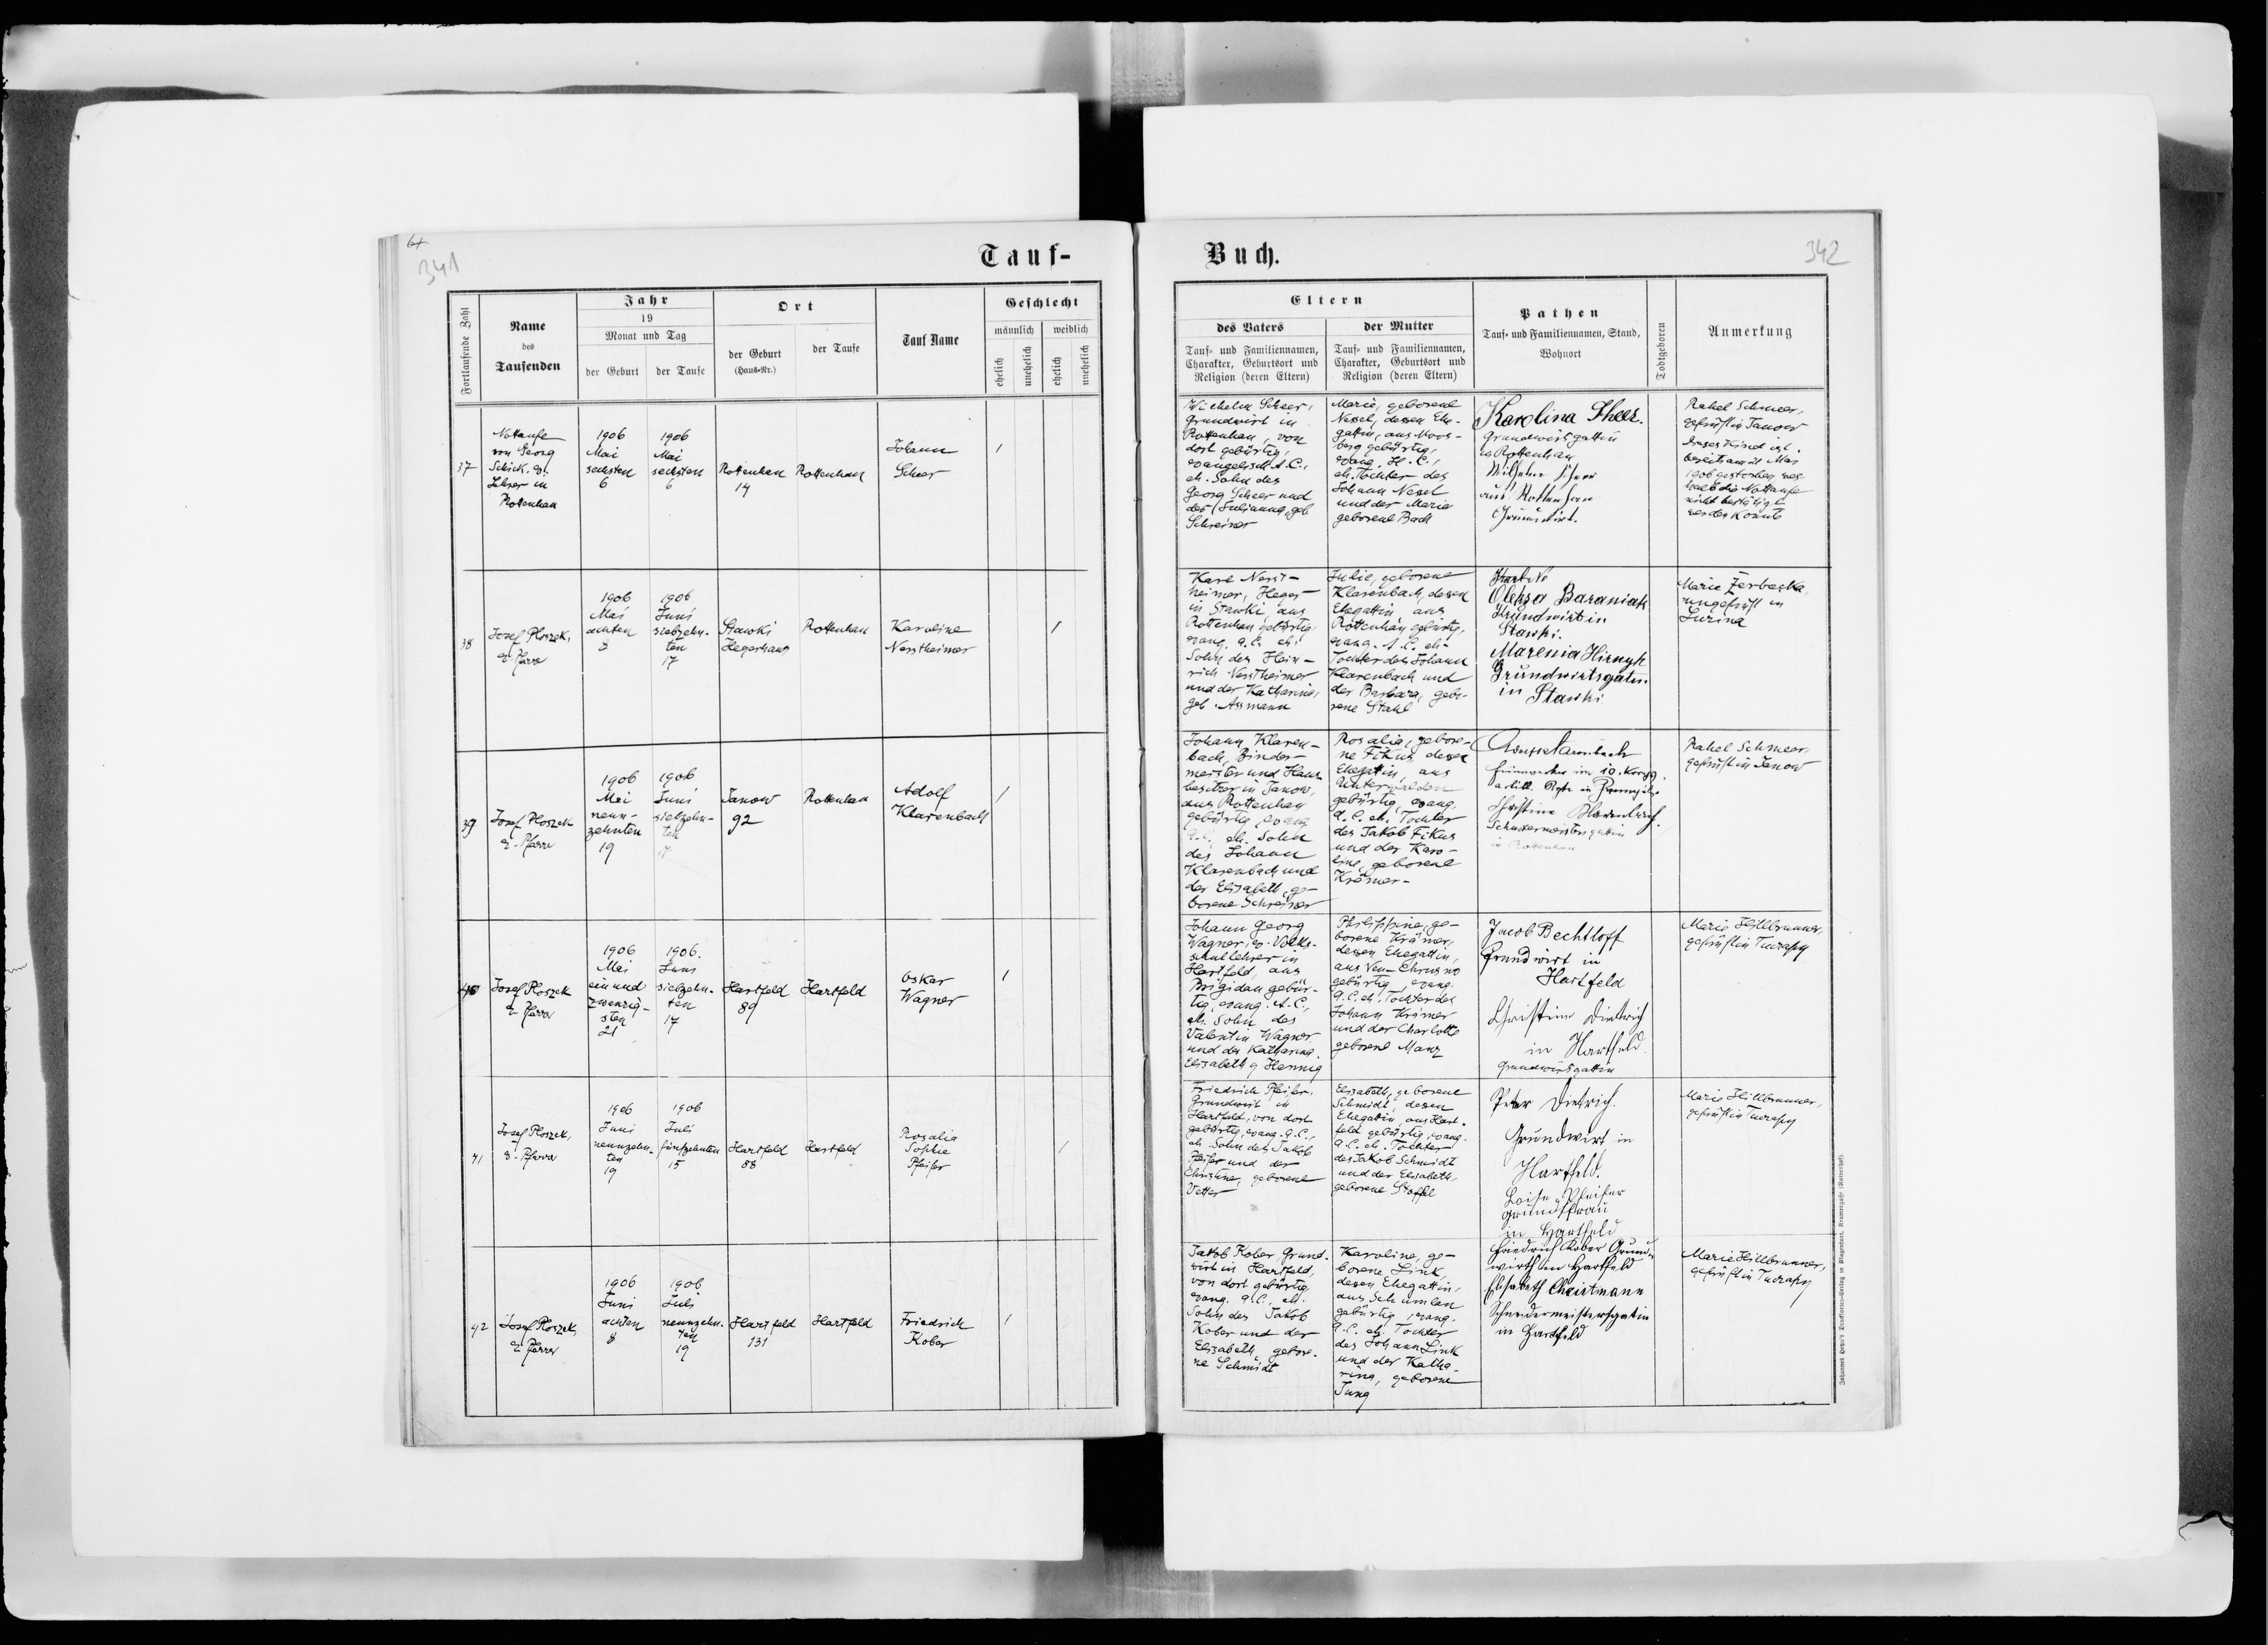 341
Tauf-
Fortlaufende Zahl
Name
des
Taufenden
Jahr
19
Monat und Tag
der Geburt
der Taufe
Ort
der Geburt
(Haus-Nr.)
der Taufe
Tauf Name
Geschlecht
männlich
weiblich
ehelich
unehelich
ehelich
unehelich
37
Nottaufe
von Georg
Schick, ev.
Lehrer in
Rottenhan
1906
Mai
sechsten
6
1906
Mai
sechsten
6
Rottenhan
14
Rottenhan
Johann
Scheer
38
Josef Ploszek,
ev. Pfarrer
1906
Mai
achten
8
1906
Juni
siebzehn-
ten
17
Stawki
Hegerhaus
Rottenhan
Karoline
Nerstheimer
39
Josef Ploszek
ev. Pfarrer
1906
Mai
neun-
zehnten
19
1906
Juni
siebzehn-
ten
17
Janow
92
Rottenhan
Adolf
Klarenbach
40
Josef Ploszek
ev. Pfarrer
1906
Mai
einund
zwanzig-
sten
21
1906.
Juni
siebzehn-
ten
17
Hartfeld
89
Hartfeld
Oskar
Wagner
41
Josef Ploszek,
ev. Pfarrer
1906
Juni
neunzehn-
ten
19
1906
Juli
fünfzehnten
15
Hartfeld
88
Hartfeld
Rosalia
Sophie
Pfeifer
42
Josef Ploszek,
ev. Pfarrer
1906
Juni
achten
8
1906
Juli
neunzehn-
ten
19
Hartfeld
131
Hartfeld
Friedrich
Kober
Buch.
342
Eltern
des Vaters
Tauf- und Familiennamen,
Charakter, Geburtsort und
Religion (deren Eltern)
der Mutter
Tauf- und Familiennamen,
Charakter, Geburtsort und
Religion (deren Eltern)
Pathen
Tauf- und Familiennamen, Stand,
Wohnort
Todtgeboren
Anmerkung
Wilhelm Scheer,
Grundwirt in
Rottenhan, von
dort gebürtig,
evangelisch A.C.,
eh. Sohn des
Georg Scheer und
der Julianna, geb
Schreiner
Marie, geborene
Nesel, dessen Ehe-
gattin, aus Moos-
berg gebürtig,
evang. H.C.,
eh. Tochter des
Johann Nesel
und der Marie
geborene Bach
Karolina Sheer.
Grundwirtsgattin
in Rottenhan
Wilhelm
aus Rottenhan
Grundwirt.
Rahel Schmeer,
geprüft in Janow
Dieses Kind ist
bereits am Mai
1906 gestorben, wes
halb die Nottaufe
nicht bestätigt
werden konnte
Karl Nerst-
heimer, Heger
in Stawki aus
Rottenhan gebürtig,
evang. A.C. eh.
Sohn des Hein-
rich Nerstheimer
und der Katharina,
geb. Assmann
Julie, geborene
Klarenbach, dessen
Ehegattin aus
Rottenhan gebürtig,
evang. A.C. eh.
Tochter des Johann
Klarenbach und
der Barbara, gebo-
rene Stahl
Oleksa Baraniak
Grundwirt in
Stawki.
Marenia Hirnyk
Grundwirtsgatin
in Stawki
Marie Zerbecka,
ungeprüft in
Lozina
Johann Klaren-
bach, Binder-
meister und Haus
besitzer in Janow,
aus Rottenhan
gebürtig, evang
A.C. eh. Sohn
des Johann
Klarenbach und
der Elisabeth, ge-
borene Schreiner
Rosalia, gebore-
ne Fikus dessen
Ehegattin, aus
Unterwalden
gebürtig, evang.
A.C. eh. Tochter
des Jakob Fikus
und der Karo-
line, geborene
Krämer-
im 10. Korps
Christine Klarenbach.
Schustermeistersgattin
in Rottenhan
Rahel Schmeer,
geprüft in Janow
Johann Georg
Wagner, ev. Volks-
schullehrer in
Hartfeld, aus
Brigidau gebür-
tig, evang. A.C.,
eh. Sohn des
Valentin Wagner
und der Katharina
Elisabeth g Hennig
Philippine, ge-
borene Krämer,
dessen Ehegattin,
aus Neu-Chrusno
gebürtig, evang.
A.C. eh. Tochter des
Johann Krämer
und der Charlotte
geborene Manz
Jacob Bechtloff
Grundwirt in
Hartfeld
Christine Dietrich
in Hartfeld.
Grundwirtsgattin
Marie Hillbrunner
geprüft in
Friedrich Pfeifer,
Grundwirt in
Hartfeld, von dort
gebürtig, evang. A.C.,
eh. Sohn des Jakob
Pfeifer und der
Christine, geborene
Vetter
Elisabeth, geborene
Schmidt, dessen
Ehegattin, aus Hart-
feld gebürtig, evang.
A.C. eh. Tochter
des Jakob Schmidt
und der Elisabeth,
geborene Stoffel
Peter Dietrich.
Grundwirt in
Hartfeld.
Loise Pfeifer
Grundsfrau
in Hartfeld
Marie Hillbrunner,
geprüft in
Jakob Kober, Grund-
wirt in Hartfeld,
von dort gebürtig
evang. A.C., eh.
Sohn des Jakob
Kober und der
Elisabeth, gebore-
ne Schmidt
Karoline, ge-
borene Link,
dessen Ehegattin,
aus Schumlau
gebürtig, evang.
A.C. eh. Tochter
des Johann Link
und der Katha-
rina, geborene
Jung
Friedrich Kober Grund-
wirth in Hartfeld
Elisabeth Christmann
Schneidermeistersgatin
in Hartfeld
Marie Hillbrunner,
geprüft in